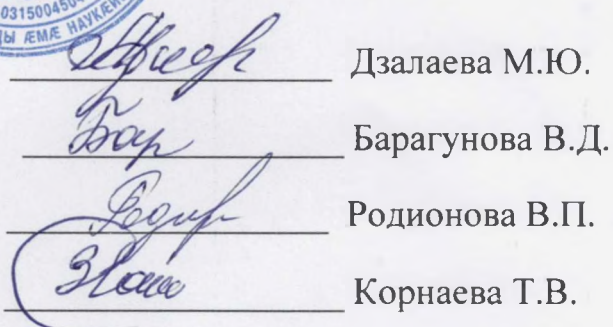 0315004504
НАУКÆЙЫ ÆМÆ
Дзалаева М.Ю.
Бар Барагунова В.Д.
Родионова В.П.
Корнаева Т.В.